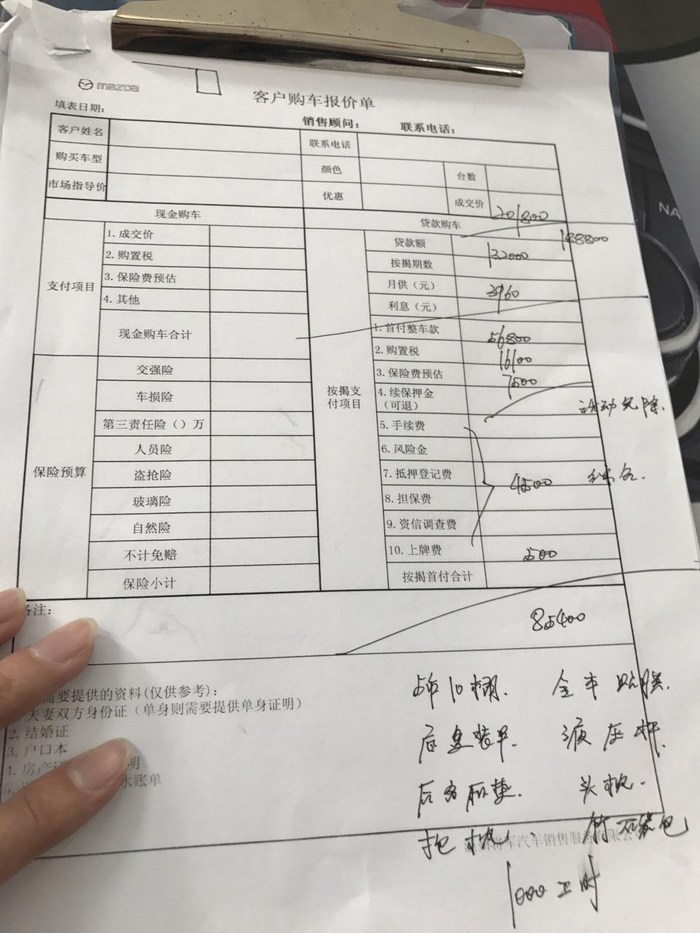 mazda
客户购车报价单
填表日期： 销售顾问： 联系电话：
客户姓名 联系电话
购买车型 颜色 台数
市场指导价 优惠 成交价 201800
188800
现金购车 贷款购车
支付项目
1. 成交价
2. 购置税
3. 保险费预估
4. 其他
现金购车合计
贷款额 132000
按揭期数
月供（元） 3960
利息（元）
按揭支付项目
1. 首付整车款 56800
2. 购置税 16100
3. 保险费预估 7500
4. 续保押金（可退）
5. 手续费
6. 风险金
7. 抵押登记费 4500
8. 担保费
9. 资信调查费
10. 上牌费 500
按揭首付合计
保险预算
交强险
车损险
第三责任险（）万
人员险
盗抢险
玻璃险
自然险
不计免赔
保险小计
备注： 85400
需要提供的资料(仅供参考)：
夫妻双方身份证（单身则需要提供单身证明）
2. 结婚证
3. 户口本
水账单
全车贴膜
底盘装甲 液压杆
头枕
1000工时